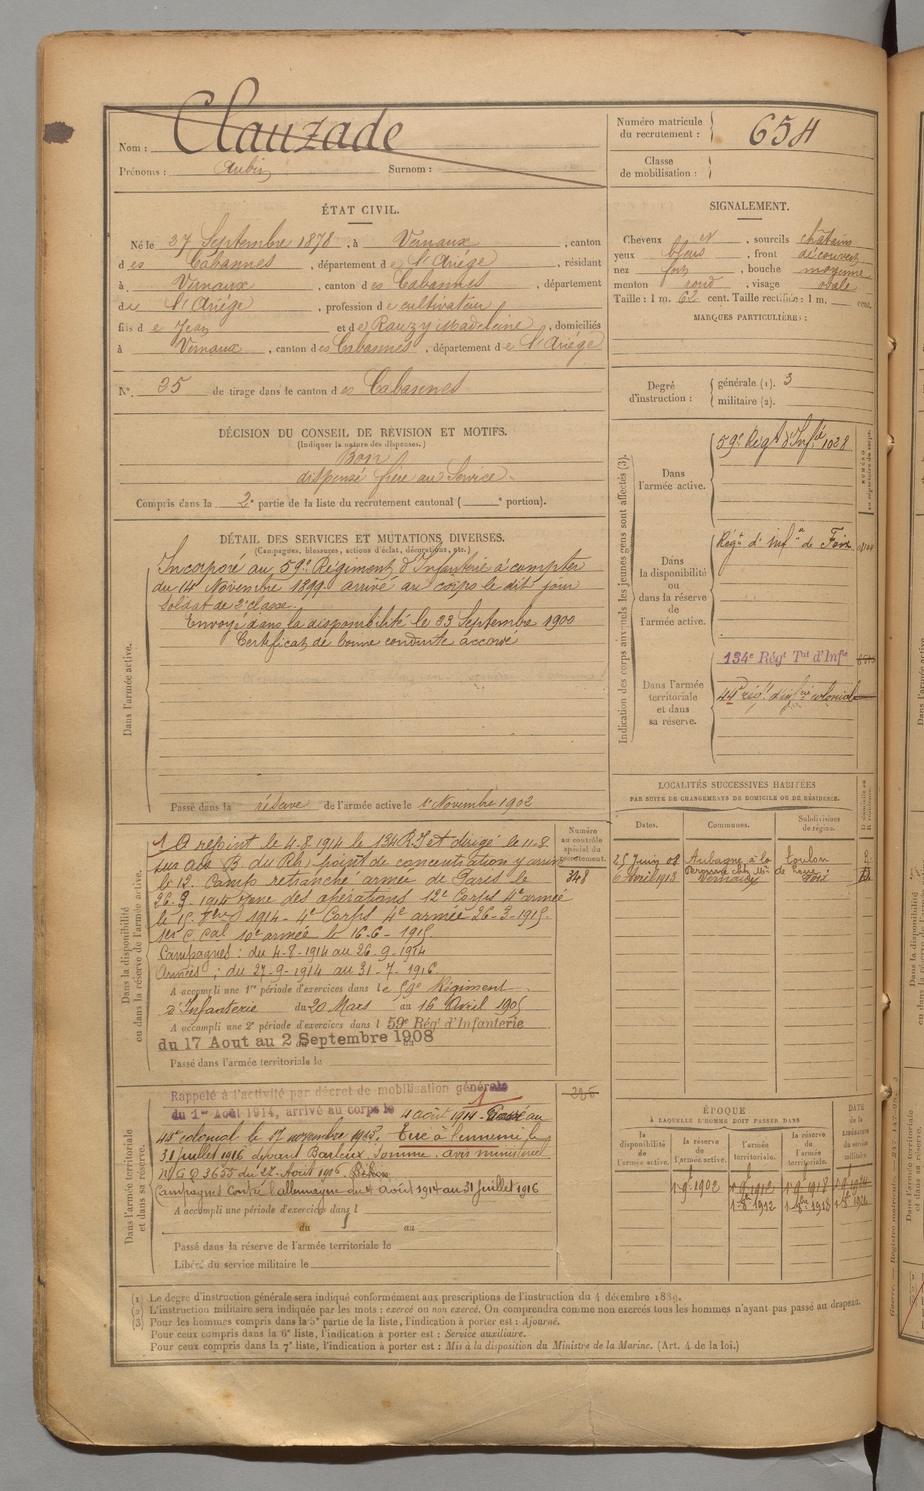 Nom : Clauzade
Prénoms : Aubin Surnom :
Numéro matricule du recrutement : 654
Classe de mobilisation :
ÉTAT CIVIL.
Né le 27 Septembre 1878, à Vernaux, canton
des Cabannes, département de l'Ariége, résidant
à Vernaux, canton des Cabannes, département
de l'Ariége, profession de cultivateur
fils de Jean et de Rauzy Madeleine, domiciliés
à Vernaux, canton des Cabannes, département de l'Ariége
N° 35 de tirage dans le canton des Cabannes
SIGNALEMENT.
Cheveux et, sourcils châtains
yeux bleus, front découvert
nez fort, bouche moyenne
menton rond, visage ovale
Taille : 1 m. 62 cent. Taille rectifiée : 1 m. cent.
MARQUES PARTICULIÈRES :
Degré d'instruction : générale (1). 3
militaire (2).
DÉCISION DU CONSEIL DE RÉVISION ET MOTIFS.
(Indiquer la nature des dispenses.)
Bon
dispensé frère au Service
Compris dans la 2e partie de la liste du recrutement cantonal ( e portion).
DÉTAIL DES SERVICES ET MUTATIONS DIVERSES.
(Campagnes, blessures, actions d'éclat, décorations, etc.)
Dans l'armée active.
Incorporé au 59e Régiment d'Infanterie à compter
du 14 Novembre 1899 arrivé au corps le dit jour
Soldat de 2e classe.
Envoyé dans la disponibilité le 23 Septembre 1900
Certificat de bonne conduite accordé
Passé dans la réserve de l'armée active le 1er Novembre 1902
Indication des corps auxquels les jeunes gens sont affectés (3).
Dans l'armée active.
59e Régt d'Infie 1028
Dans la disponibilité ou dans la réserve de l'armée active.
Régt d'infie de Foix
Dans l'armée territoriale et dans sa réserve.
134e Régt Tal d'Infie
44e régt d'infie colonial
LOCALITÉS SUCCESSIVES HABITÉES
PAR SUITE DE CHANGEMENTS DE DOMICILE OU DE RÉSIDENCE.
Dates. Communes. Subdivisions de région.
25 Juin 08 Aubagne à la Toulon
6 Avril 1913 Vernaux Foix
Dans la disponibilité ou dans la réserve de l'armée active.
Numéro au contrôle spécial du recrutement.
348
A rejoint le 4-8-1914 le 134 R.I. et dirigé le 11-8
point de concentration y arrive
le 12. Camp retranché armée de Paris le
26-9-1914 zone des opérations 12e Corps 4e armée
le 15 1914 - 4e Corps 4e armée 26-3-1915
1er C. Cal 10e armée le 16-6-1915
Campagnes : du 4-8-1914 au 26-9-1914
Armées : du 27-9-1914 au 31-7-1916
A accompli une 1re période d'exercices dans le 59e Régiment
d'Infanterie du 20 Mars au 16 Avril 1905
A accompli une 2e période d'exercices dans l 59e Régt d'Infanterie
du 17 Aout au 2 Septembre 1908
Passé dans l'armée territoriale le
Dans l'armée territoriale et dans sa réserve.
Rappelé à l'activité par décret de mobilisation générale
du 1er Août 1914, arrivé au corps le 4 août 1914 - Passé au
44e colonial le 17 novembre 1915. Tué à l'ennemi le
31 juillet 1916 devant Barleux, Somme. avis ministériel
du 27 Août 1916.
Campagnes Contre l'allemagne du 4 août 1914 au 31 juillet 1916
A accompli une période d'exercices dans l
du au
Passé dans la réserve de l'armée territoriale le
Libéré du service militaire le
ÉPOQUE
À LAQUELLE L'HOMME DOIT PASSER DANS
la disponibilité de l'armée active. la réserve de l'armée active. l'armée territoriale. la réserve de l'armée territoriale.
DATE de la LIBÉRATION du service militaire.
(1) Le degré d'instruction générale sera indiqué conformément aux prescriptions de l'instruction du 4 décembre 1889.
(2) L'instruction militaire sera indiquée par les mots : exercé ou non exercé. On comprendra comme non exercés tous les hommes n'ayant pas passé au drapeau.
(3) Pour les hommes compris dans la 5e partie de la liste, l'indication à porter est : Ajourné.
Pour ceux compris dans la 6e liste, l'indication à porter est : Service auxiliaire.
Pour ceux compris dans la 7e liste, l'indication à porter est : Mis à la disposition du Ministre de la Marine. (Art. 4 de la loi.)